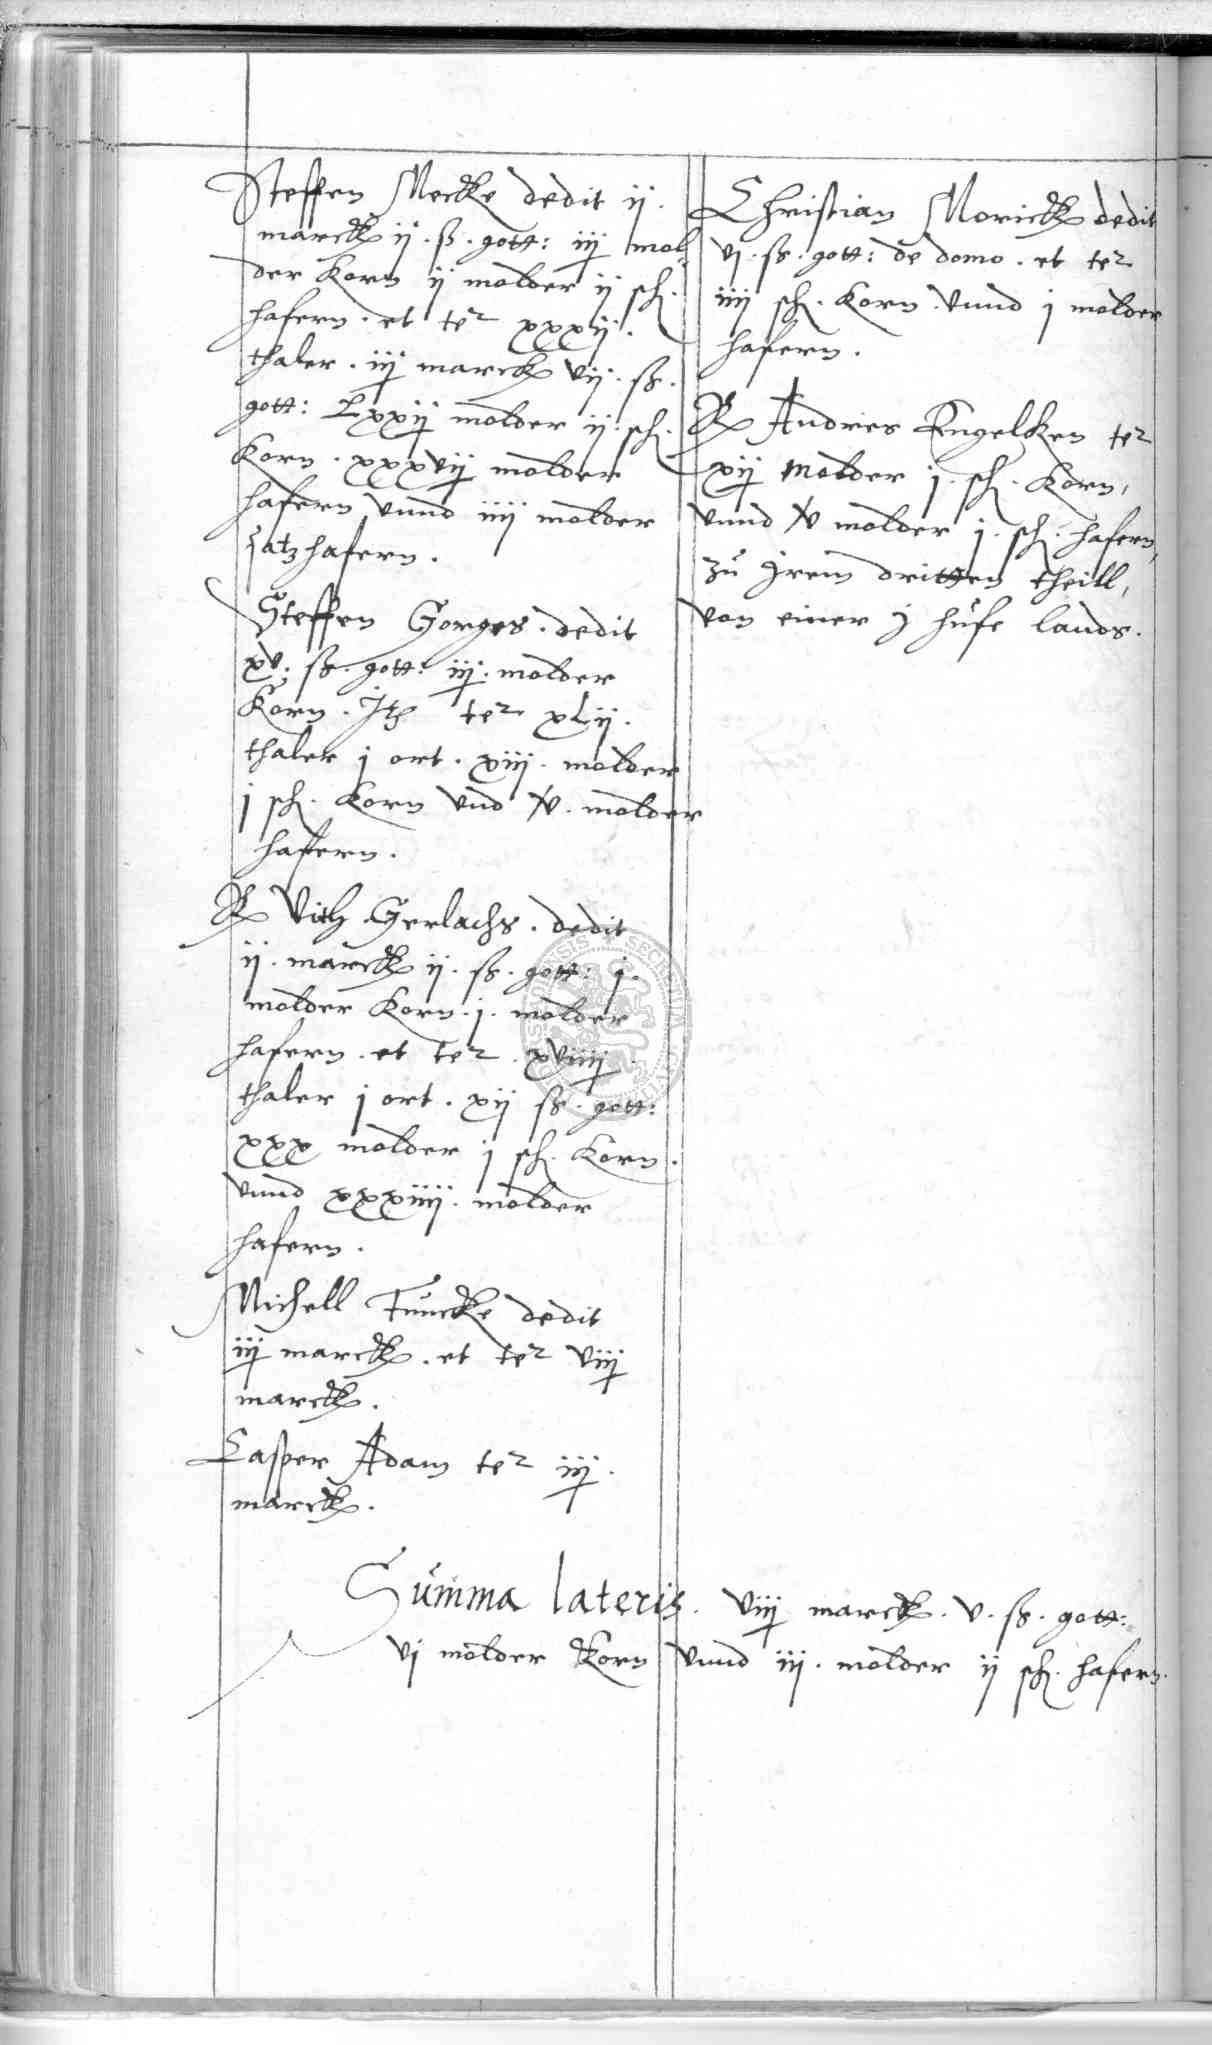 Steffen Mecke dedit ij.
marck ij. ß. gott: iij mol-
der Korn ij molder ij sch.
hafern. et ter xxxij.
thaler. iij marck vij. ß.
gott: Lxxij molder ij. sch.
Korn. xxxvij molder
hafern vnnd iiij molder
satzhafern.
Steffen Gorges. dedit
xv. ß. gott: iij. molder
Korn. Ite ter xLij.
thaler j ort. xiij. molder
j sch. Korn vnd v. molder
hafern.
R Vith Gerlachs. dedit
ij. marck ij. ß. gott: j.
molder Korn. j. molder
hafern. et ter. xviiij
thaler j ort. xij ß. gott:
xxx molder j sch. Korn.
vnnd xxxiiij. molder
hafern.
Michell Tuncke dedit
iij marck. et ter viij
marck.
Casper Adam ter iij.
marck.
Christian Morick dedit
vj. ß. gott: de domo. et ter
iiij sch. Korn. vnnd j molder
hafern.
R Andries Engelken ter
xij molder j. sch. Korn,
vnnd v molder j. sch. hafern,
zu Jrem dritten theill,
von einer j hufe lands.
Summa lateris. viij marck. v. ß. gott:
vj molder Korn vnnd iij. molder ij sch. hafern.